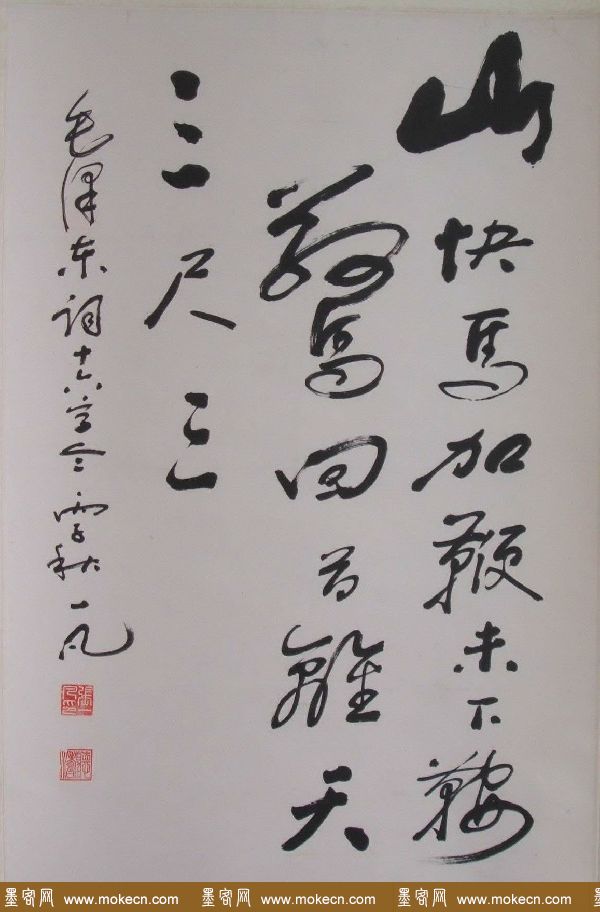 山快馬加鞭未下鞍
驚回首離天
三尺三
毛澤东詞十六字令丙子秋一凡
墨客网 www.mokecn.com 墨客网 www.mokecn.com 墨客网 www.mokecn.com